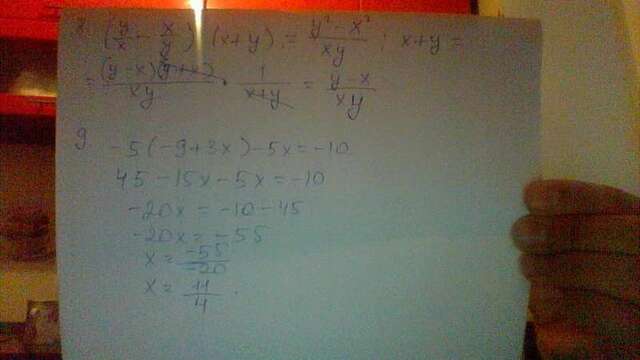 8. (y/x - x/y) : (x+y) = (y² - x²)/xy : x+y =
= (y-x)(y+x)/xy · 1/(x+y) = (y-x)/xy
9.
-5(-9+3x)-5x=-10
45-15x-5x=-10
-20x = -10-45
-20x = -55
x = -55/-20
x = 11/4.